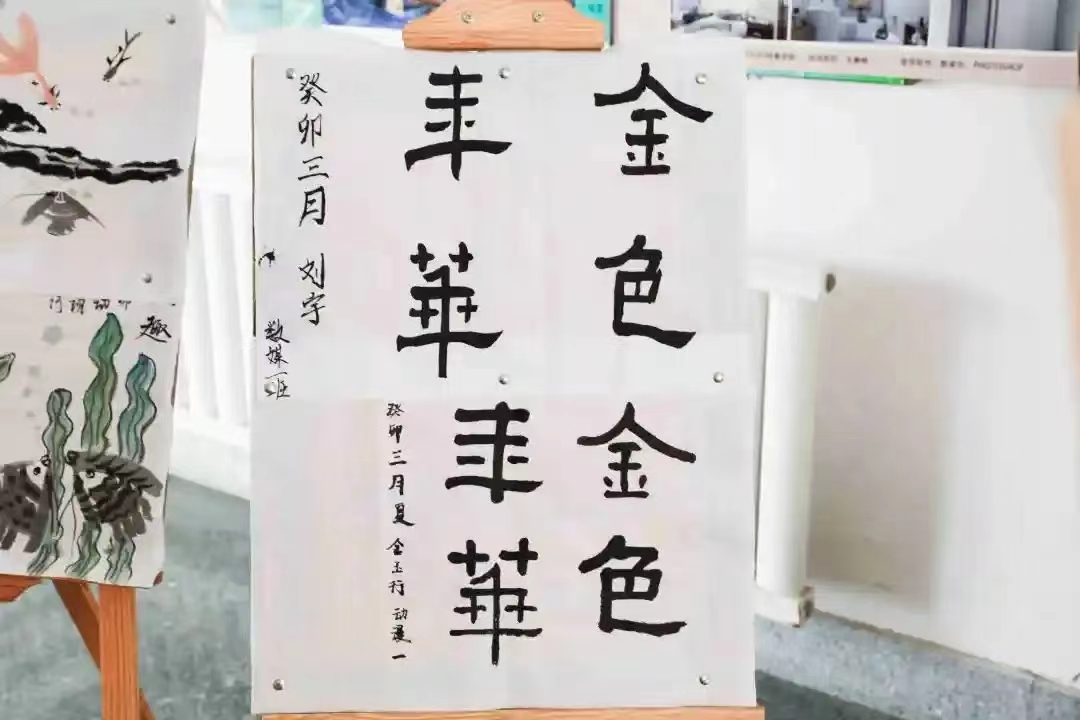 金色
年華
癸卯三月 刘宇
数媒一班
金色
年華
癸卯三月夏
金玉行 动漫一
趣